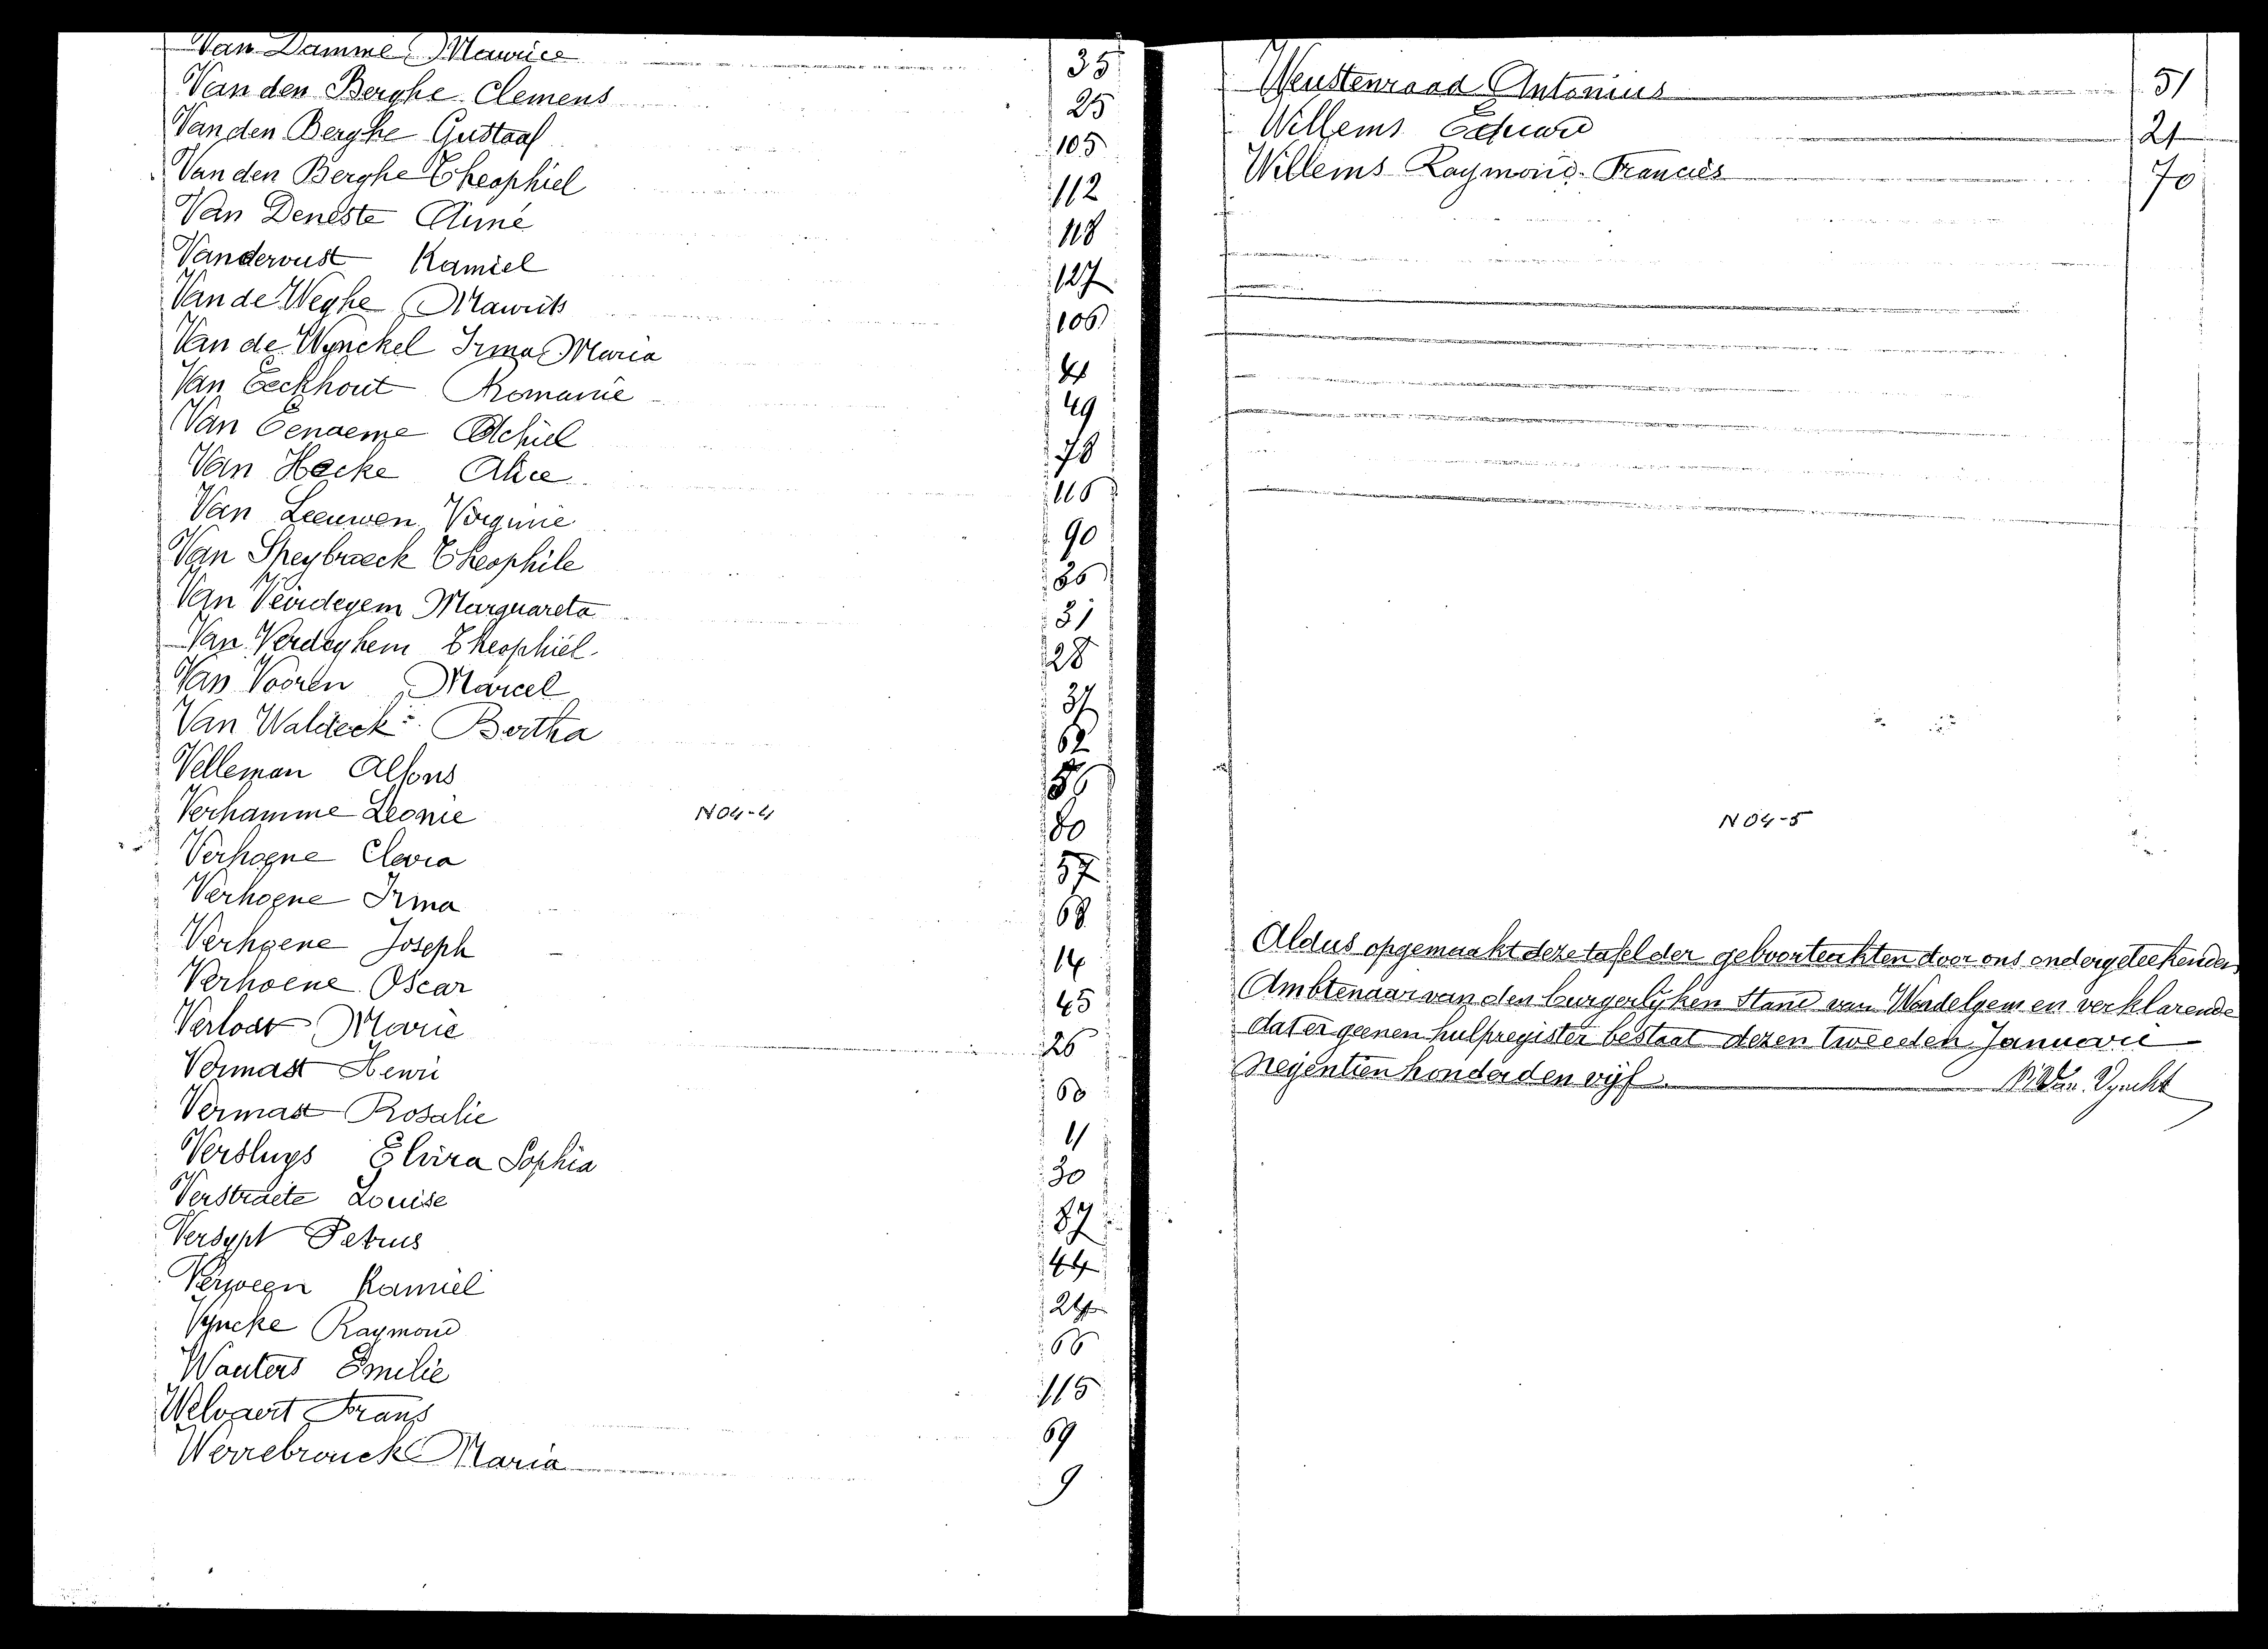 Van Damme Maurice 35
Van den Berghe Clemens 25
Van den Berghe Gustaaf 105
Van den Berghe Theophiel 112
Van Deneste Aimé 118
Vandervust Kamiel 127
Van de Weghe Maurits 106
Van de Wynckel Irma Maria 4
Van Eeckhout Romanie 49
Van Eenaeme Achiel 78
Van Hecke Alice 116
Van Leeuwen Virginie 90
Van Speybroeck Theophile 86
Van Verdegem Marguareta 31
Van Verdeghem Theophiel 28
Van Vooren Marcel 37
Van Waldeck Bertha 62
Velleman Alfons 86
Verhamme Leonie 80
N04-4
Verhoene Clara 57
Verhoene Irma 68
Verhoene Joseph 14
Verhoene Oscar 45
Verloat Marie 26
Vermast Henri 60
Vermast Rosalie 11
Versluys Elvira Sophia 30
Verstraete Louise 87
Versypt Petrus 44
Kamiel 24
Vyncke Raymond 66
Wauters Emilie 115
Welvaert Frans 69
Werrebrouck Maria 9
Weustenraad Antonius 51
Willems Eduard 21
Willems Raymond Francies 70
N04-5
Aldus opgemaakt deze tafel der geboorteakten door ons ondergeteekenden
Ambtenaar van den burgerlyken Stand van Wondelgem en verklarende
dat er geenen hulpregister bestaat dezen tweeden Januarii
Negentien honderd en vijf.